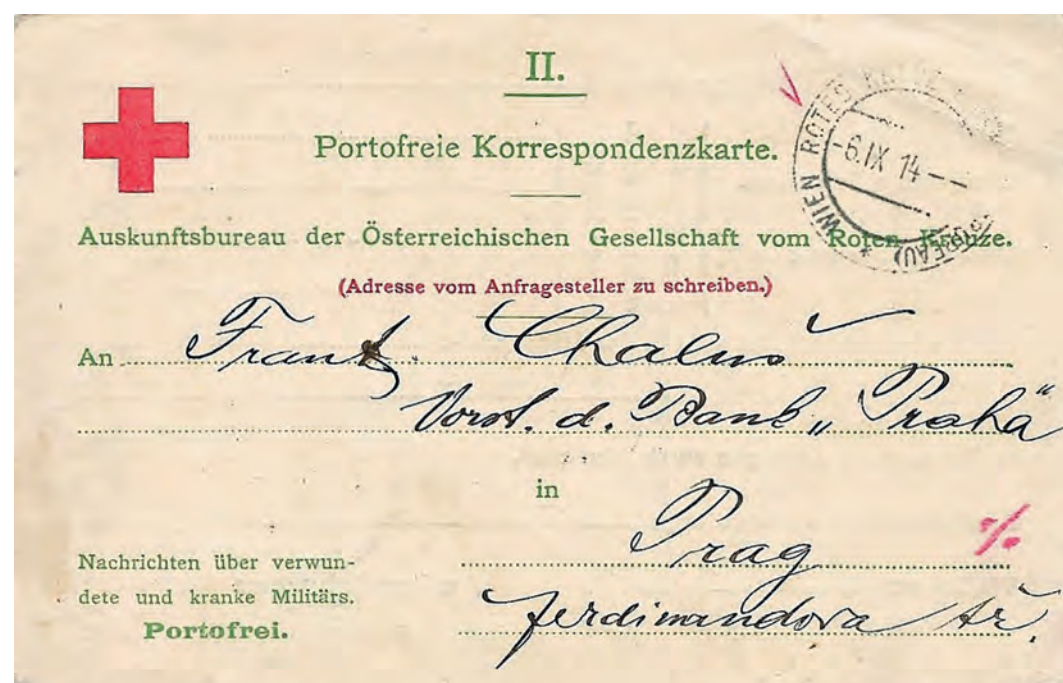 II.
Portofreie Korrespondenzkarte.
WIEN ROTES
-6.IX 14--
Auskunftsbureau der Österreichischen Gesellschaft vom Roten Kreuze.
(Adresse vom Anfragesteller zu schreiben.)
An Frank Chaluš
Vorst. d. Bank „Praha“
in
Prag
Nachrichten über verwun-
dete und kranke Militärs.
Portofrei.
Ferdinandova tř.